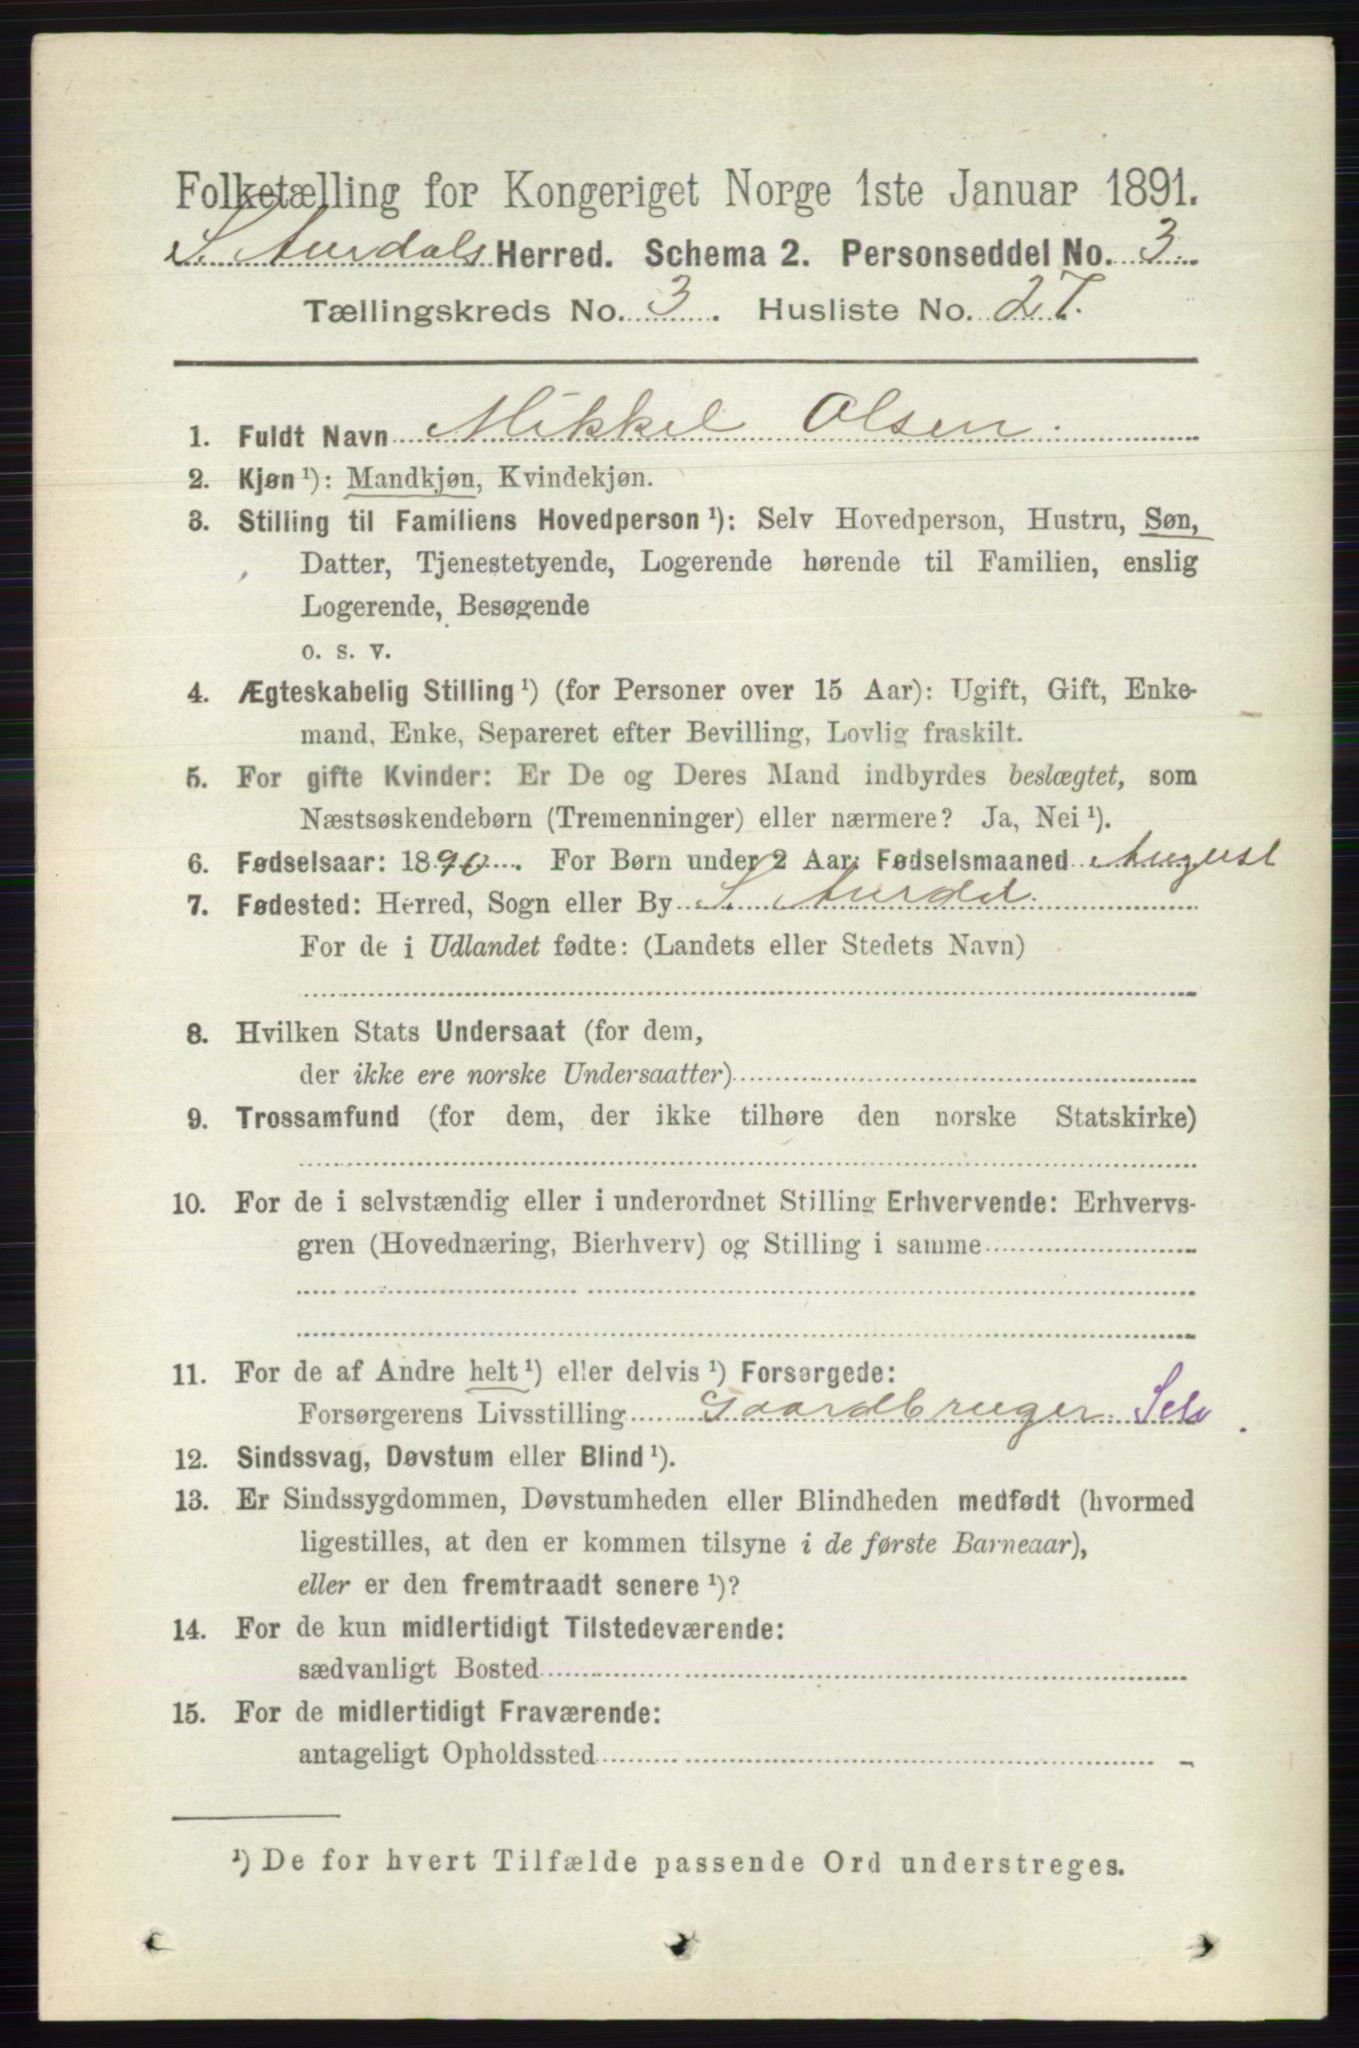 Folketælling for Kongeriget Norge 1ste Januar 1891.
S. Aurdals Herred. Schema 2. Personseddel No. 3
Tællingskreds No. 3. Husliste No. 27.
1. Fuldt Navn Mikkel Olsen.
2. Kjøn ¹): Mandkjøn, Kvindekjøn.
3. Stilling til Familiens Hovedperson ¹): Selv Hovedperson, Hustru, Søn,
Datter, Tjenestetyende, Logerende hørende til Familien, enslig
Logerende, Besøgende
o. s. v.
4. Ægteskabelig Stilling ¹) (for Personer over 15 Aar): Ugift, Gift, Enke-
mand, Enke, Separeret efter Bevilling, Lovlig fraskilt.
5. For gifte Kvinder: Er De og Deres Mand indbyrdes beslægtet, som
Næstsøskendebørn (Tremenninger) eller nærmere? Ja, Nei ¹).
6. Fødselsaar: 1890. For Børn under 2 Aar: Fødselsmaaned August
7. Fødested: Herred, Sogn eller By S. Aurdal.
For de i Udlandet fødte: (Landets eller Stedets Navn)
8. Hvilken Stats Undersaat (for dem,
der ikke ere norske Undersaatter)
9. Trossamfund (for dem, der ikke tilhøre den norske Statskirke)
10. For de i selvstændig eller i underordnet Stilling Erhvervende: Erhvervs-
gren (Hovednæring, Bierhverv) og Stilling i samme
11. For de af Andre helt ¹) eller delvis ¹) Forsørgede:
Forsørgerens Livsstilling Gaardbruger Selv
12. Sindssvag, Døvstum eller Blind ¹).
13. Er Sindssygdommen, Døvstumheden eller Blindheden medfødt (hvormed
ligestilles, at den er kommen tilsyne i de første Barneaar),
eller er den fremtraadt senere ¹)?
14. For de kun midlertidigt Tilstedeværende:
sædvanligt Bosted
15. For de midlertidigt Fraværende:
antageligt Opholdssted
¹) De for hvert Tilfælde passende Ord understreges.